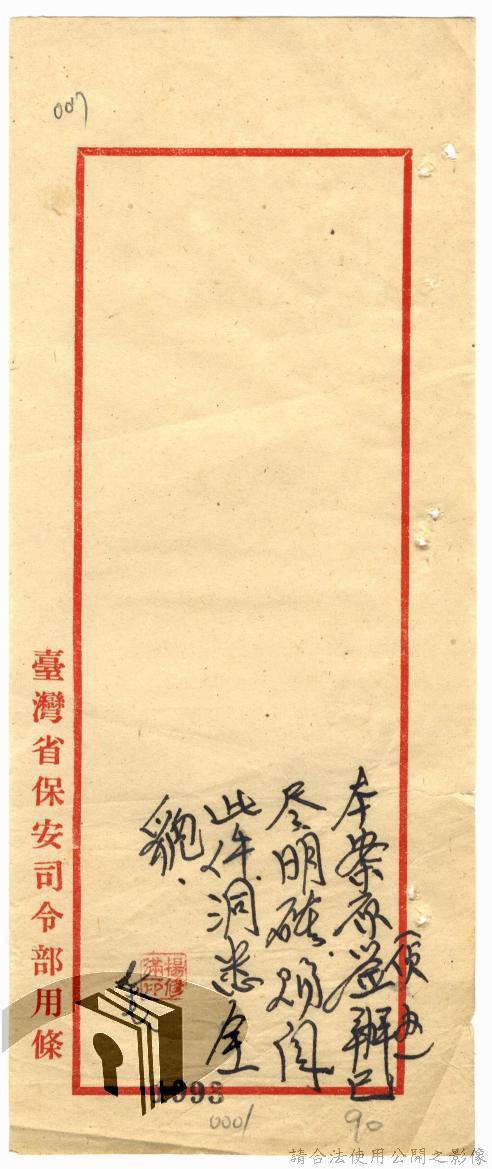 007
本案原簽辦已
尽明確，須閱
此件洞悉全
貌。
楊修
滿印
臺灣省保安司令部用條
0093
0001
90
請合法使用公開之影像